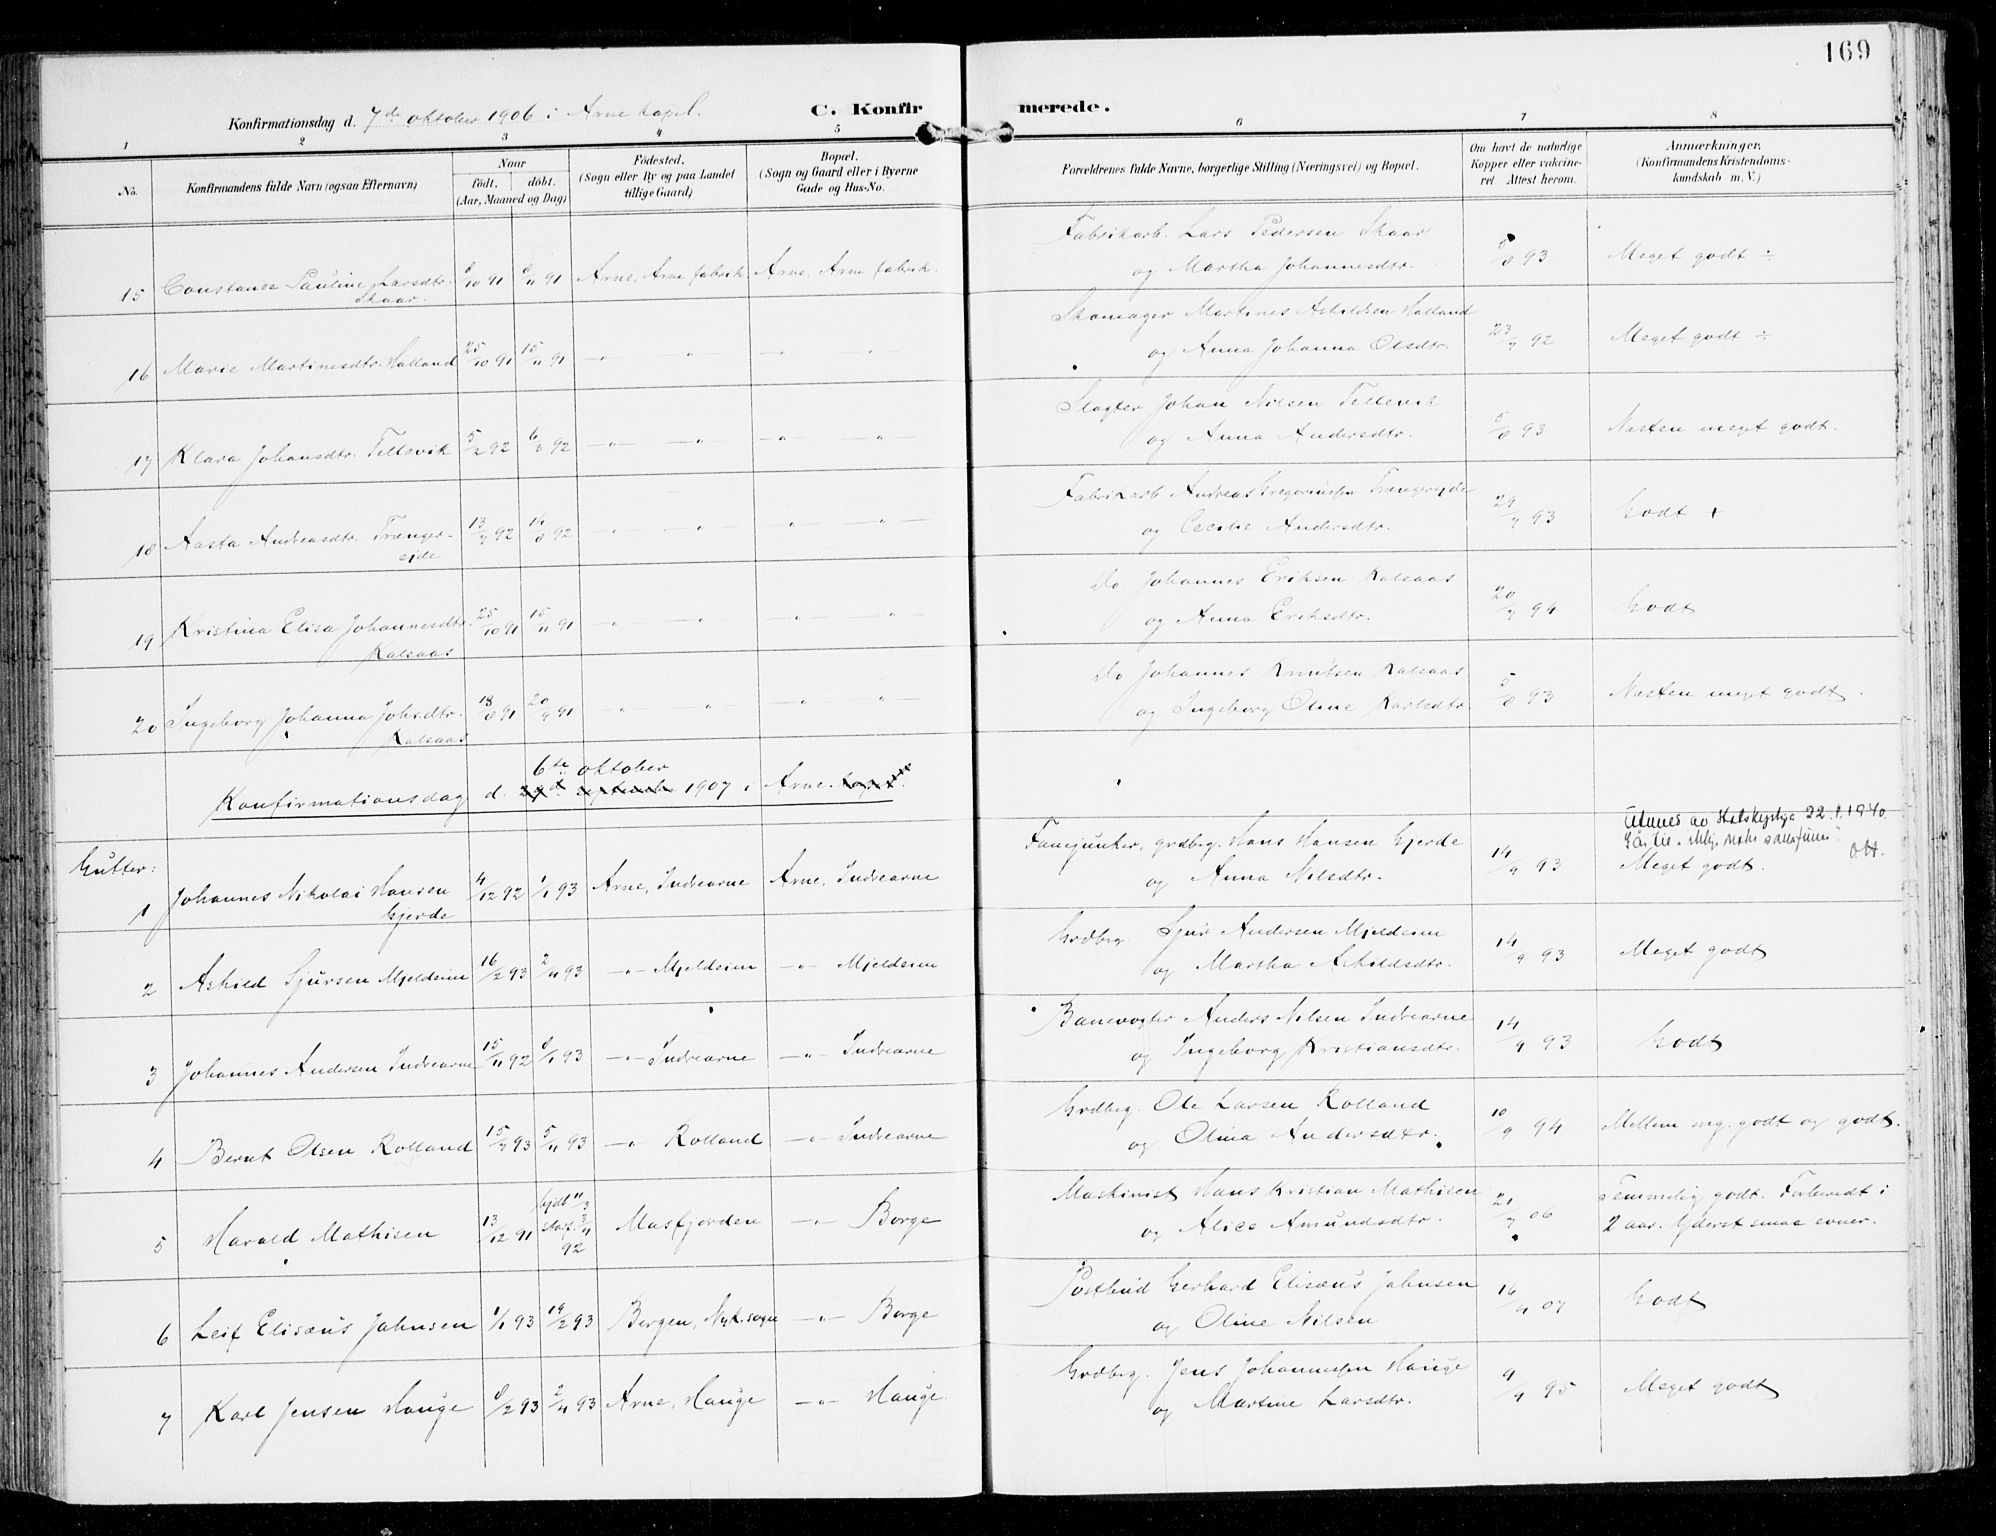 169
Konfirmationsdag d. 7de oktober 1906 i Arne kapel.
C. Konfirmerede.
1 2 3 4 5 6 7 8
No.
Konfirmandens fulde Navn (ogsaa Efternavn)
Naar
födt. döbt.
(Aar, Maaned og Dag)
Födested.
(Sogn eller By og paa Landet
tillige Gaard)
Bopæl.
(Sogn og Gaard eller i Byerne
Gade og Hus-No.
Forældrenes fulde Navne, borgerlige Stilling (Næringsvei) og Bopæl.
Om havt de naturlige
Kopper eller vakcine-
ret. Attest herom.
Anmærkninger.
(Konfirmandens Kristendoms-
kundskab m. V.)
15 Constance Pauline Larsdtr. 8/10 91 8/11 91 Arne, Arne fabrik Arne, Arne fabrik. Fabrikarb. Lars Pedersen Skaar 5/8 93 Meget godt ÷
Skaar. og Martha Johannesdtr.
16 Marie Martinesdtr. Halland 25/10 91 15/11 91 —„— —„— —„— „ Skomager Martines Askildsen Halland 23/7 92 Meget godt ÷
og Anna Johanna Olsdtr.
17 Klara Johansdtr. Tellevik 5/2 92 6/3 92 —„— —„— —„— —„— Slagter Johan Nilsen Tellevik 5/8 93 Næsten meget godt.
og Anna Andersdtr.
18 Aasta Andreasdtr. Trænger- 13/7 92 14/8 92 —„— —„— —„— —„— Fabrikarb Andreas Gregoriussen Trængereide 29/7 93 Godt +
eide og Cecilie Andersdtr.
19 Kristina Elisa Johannesdtr. 25/10 91 15/11 91 —„— —„— —„— —„— Do. Johannes Eriksen Kalsaas 20/7 94 Godt
Kalsaas og Anna Eriksdtr.
20 Ingeborg Johanna Johsdtr. 18/8 91 20/9 91 —„— —„— —„— —„— Do Johannes Knutsen Kalsaas 5/8 93 Næsten meget godt.
Kalsaas og Ingeborg Oline Karlsdtr.
6te oktober
Konfirmationsdag d. 29de september 1907 i Arne kapel.
Gutter:
22.1.1940.
1 Johannes Nikolai Hansen 4/12 92 1/1 93 Arne, Indrearne Arne, Indrearne Fanejunker, grdbrg. Hans Hansen Gjerde 14/9 93 Meget godt.
Gjerde og Anna Nilsdtr.
2 Askild Sjursen Mjeldeim 16/2 93 2/4 93 —„— Mjeldeim —„— Mjeldeim Grdbrg. Sjur Andersen Mjeldeim 14/9 93 Meget godt
og Martha Askildsdtr.
3 Johannes Andersen Indrearne 15/11 92 8/1 93 —„— Indrearne —„— Indrearne Banevogter Anders Nilsen Indrearne 14/9 93 Godt
og Ingeborg Kristiansdtr.
4 Bernt Olsen Rolland 15/7 93 5/11 93 —„— Rolland —„— Indrearne Grdbrg. Ole Larsen Rolland 10/9 94 Mellem mg. godt og godt.
og Olina Andersdtr.
5 Harald Mathisen 13/12 91 92 Masfjorden —„— Borge Maskinist Hans Kristian Mathisen 21/7 06 Temmelig godt. Forberedt i
og Alice Amundsdtr. 2 aar. Yderst smaa evner.
6 Leif Elisæus Jahnsen 1/1 93 19/2 93 Bergen, Nyk. sogn —„— Borge Postbud Gerhard Elisæus Jahnsen 16/9 07 Godt
og Oline Nilsen
7 Karl Jensen Hauge 8/2 93 2/4 93 Arne, Hauge —„— Hauge. Grdbrg. Jens Johannessen Hauge 9/9 95 Meget godt
og Martine Larsdtr.